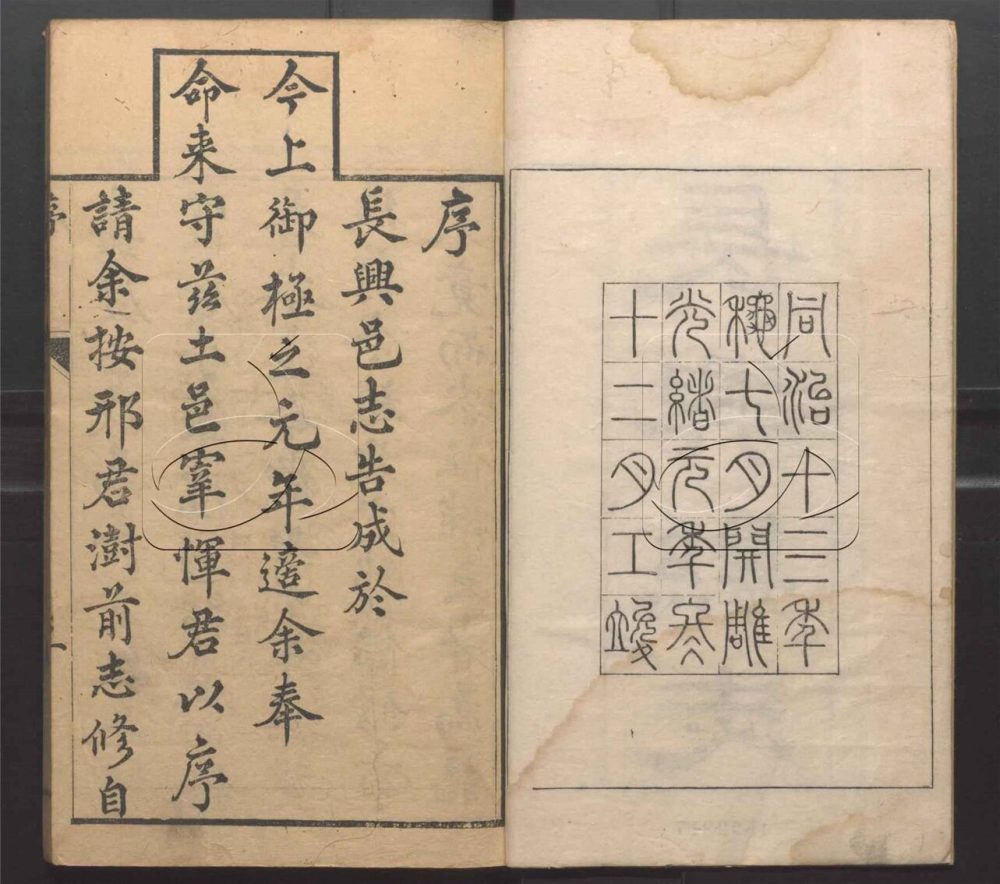 同治十三秊
龝七月開雕
光緒元秊冬
十二月工竣
序
長興邑志告成於
今上御極之元年適余奉
命来守茲土邑宰惲君以序
請余按邢君澍前志修自